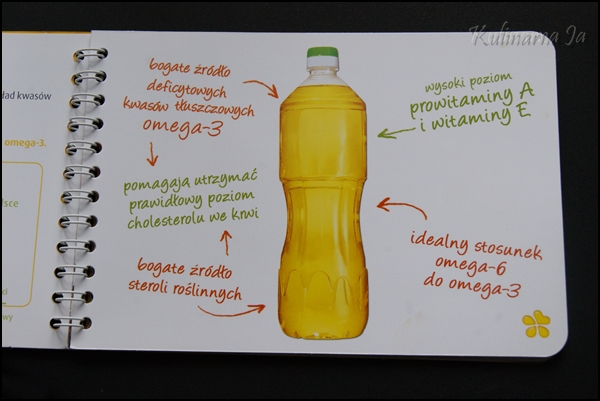 Kulinarna Ja
ład kwasów
omega-3.
sce
ci
owy
bogate źródło
deficytowych
kwasów tłuszczowych
omega-3
pomagają utrzymać
prawidłowy poziom
cholesterolu we krwi
bogate źródło
steroli roślinnych
wysoki poziom
prowitaminy A
i witaminy E
idealny stosunek
omega-6
do omega-3